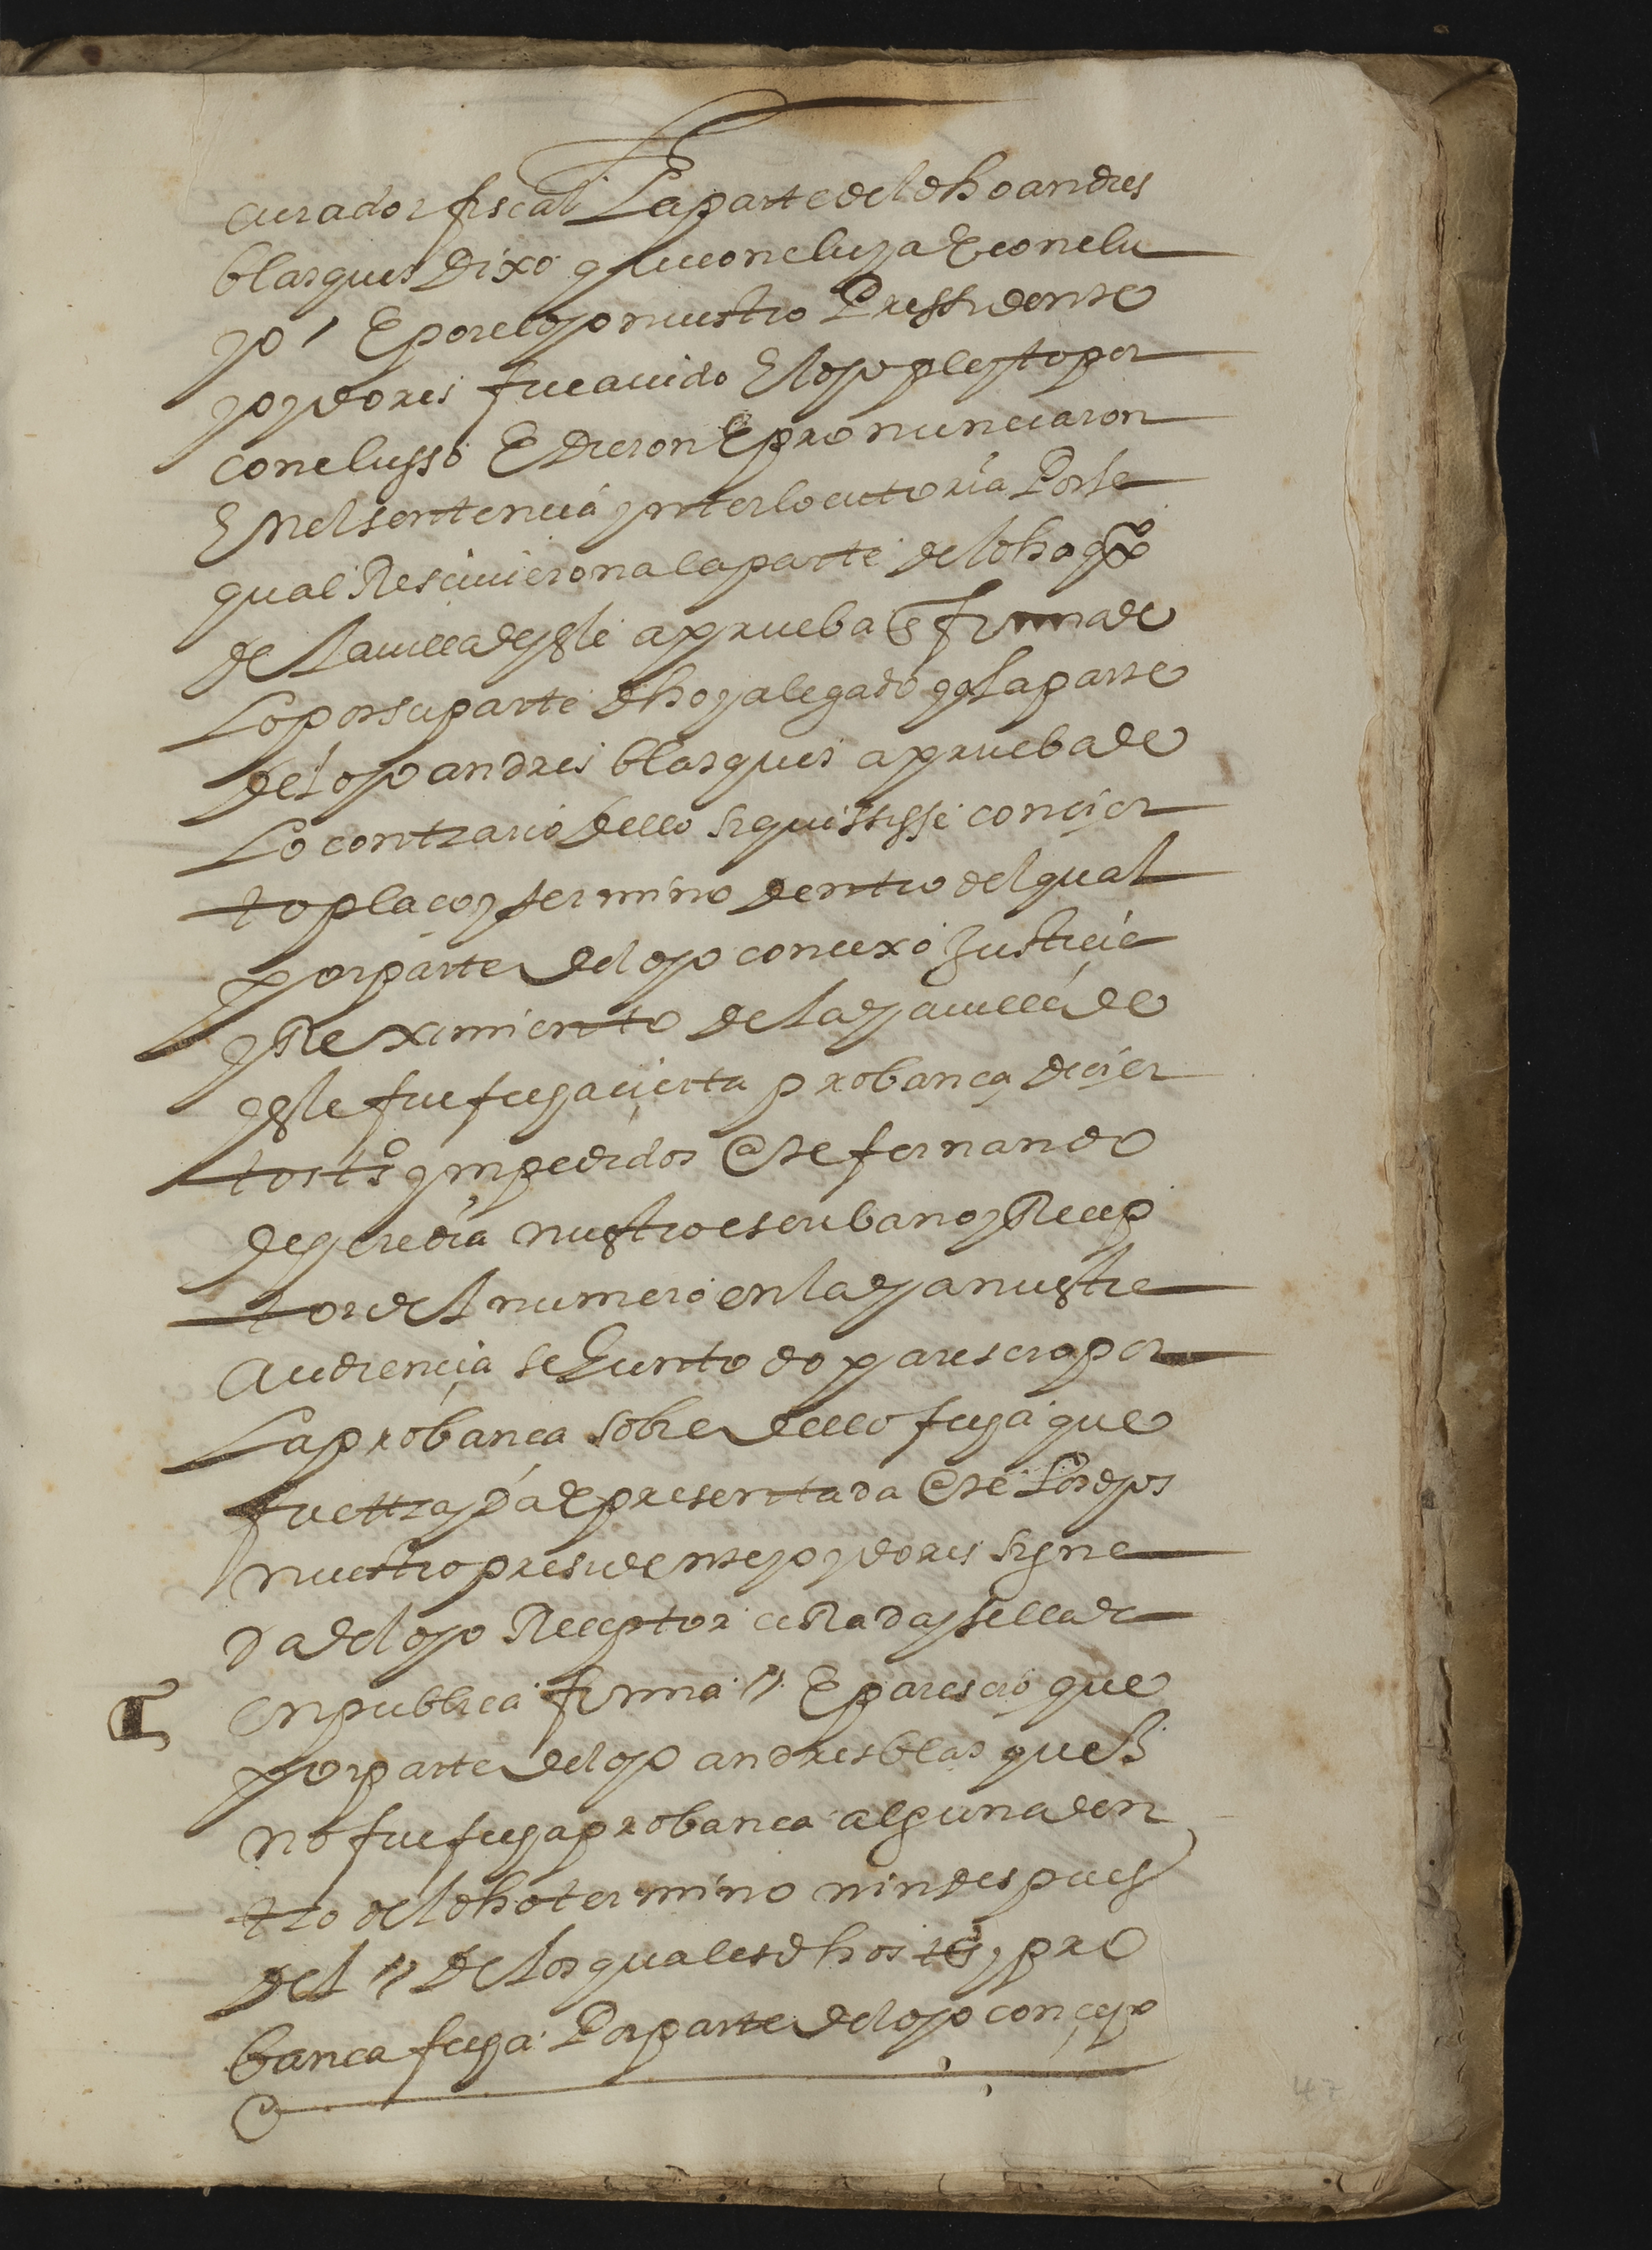 curador fiscal La parte del dho andres
blasques dixo q̃ lo concluya E conclu
yo / E por el dho nuestro Pressidente
y oydores fue auido El dho pleyto por
conclusso E dieron E pronunciaron
En el sentencia ynterlocutoria Por la
qual Resciuieron a la parte del dho qxº
de la uilla de ysle a prueba E firma de
Lo por su parte dho y alegado y a la parte
del dho andres blasques a prueba de
Lo contrario dello si quissiesse con çier
to plaço y termino dentro del qual
por parte del dho concexo Justicia
y Reximiento de la dha uilla de
ysle fue fecha cierta probança de çier
tos tºs ympedidos Ante fernando
de heredia nuestro escribano y Recep
tor del numero en la dha nuestra
Audiencia segunto do parescio por
La probança sobre dello fecha que
fue trayda E presentada Ante Los dhos
nuestro presidente y oydores signa
da del dho Receptor cerrada y sellada
en publica firma // E parescio que
por parte del dho andres blasques
no fue fecha probança alguna den
tro del dho termino nin despues
del // de los quales dhos tºs y pro
bança fecha Por parte del dho conçejo
47